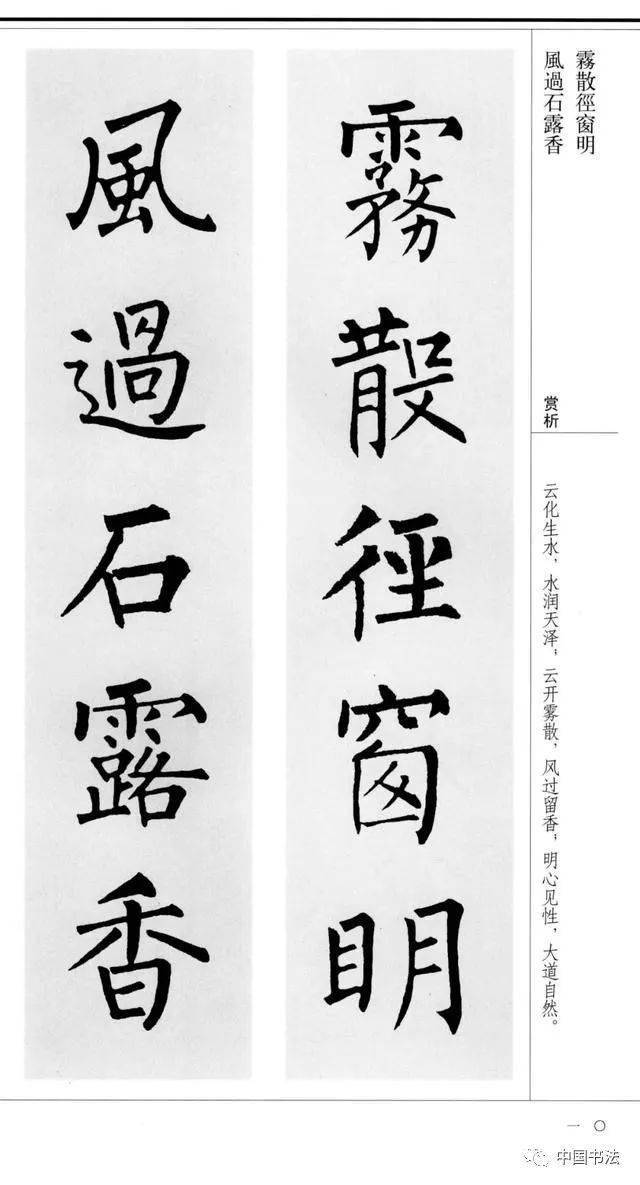 霧散徑窗明
風過石露香
霧散徑窗明
風過石露香
赏析
云化生水，水润天泽；云开雾散，风过留香；明心见性，大道自然。
一〇
中国书法